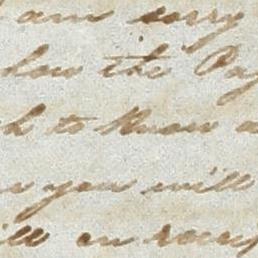 am sorry
how the Pa
h to know a
you will
ill on